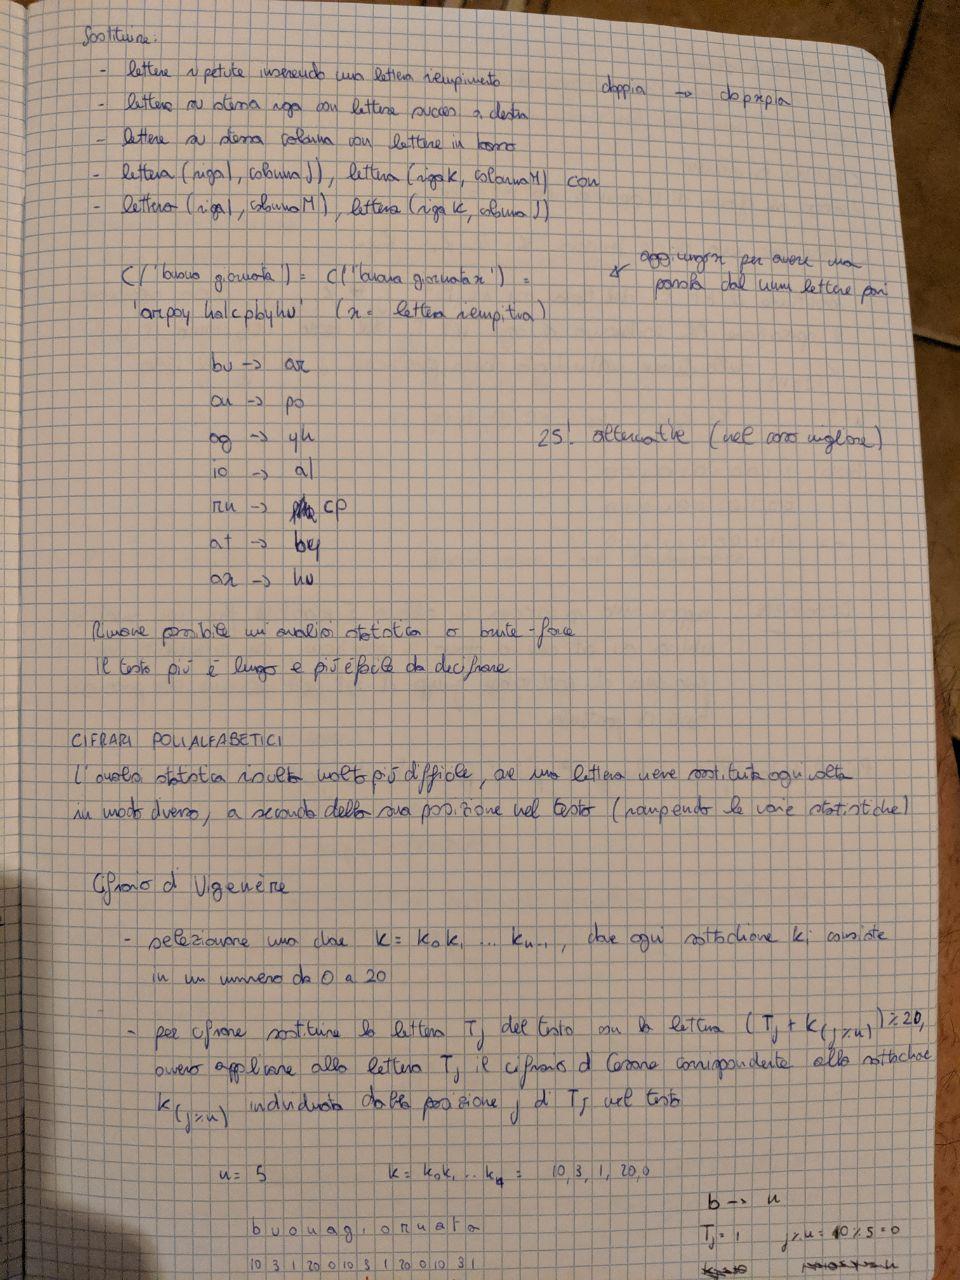 Sostituire:
- lettere ripetute inserendo una lettera riempimento doppia → dopxpia
- lettere su stessa riga con lettere succes. a destra
- lettere su stessa colonna con lettere in basso
- lettera (riga I, colonna J), lettera (riga K, colonna M) con
- lettera (riga I, colonna M), lettera (riga K, colonna J)
C('buona giornata') = C('buona giornatax') =
'arpoy halcpbyhu' (x = lettera riempitiva)
aggiungo x per avere una
parola dal num lettere pari
bu → ar
on → po
ag → yh
io → al
rn → cp
at → by
ax → hu
25! alternative (nel caso migliore)
Rimane possibile un'analisi statistica o brute-force
Il testo più è lungo e più è facile da decifrare
CIFRARI POLIALFABETICI
L'analisi statistica risulta molto più difficile, se una lettera viene sostituita ogni volta
in modo diverso, a seconda della sua posizione nel testo (rompendo le varie statistiche)
Cifrario di Vigenère
- selezionare una chiave K = K₀K₁ ... Kₙ₋₁, dove ogni sottochiave Ki consiste
in un numero da 0 a 20
- per cifrare sostituire la lettera Tj del testo con la lettera (Tj + K(j%n)) % 20,
ovvero applicare alla lettera Tj il cifrario di Cesare corrispondente alla sottochiave
K(j%n) individuata dalla posizione j di Tj nel testo
n = 5 K = K₀K₁ ... K₄ = 10, 3, 1, 20, 0
b → n
b u o n a g i o r n a t a
Tj = 1 j%n = 10%5 = 0
10 3 1 20 0 10 3 1 20 0 10 3 1